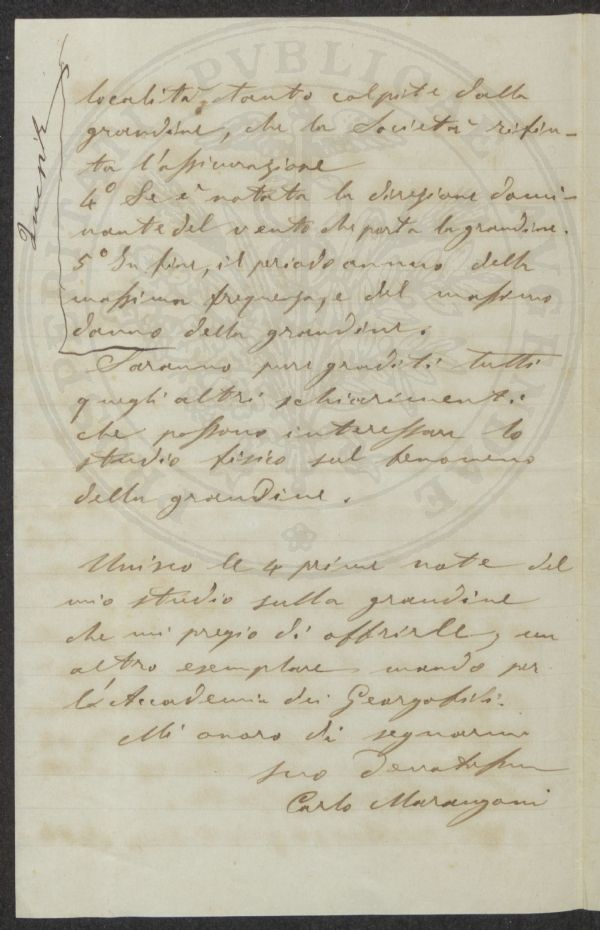 località tanto colpite dalla
grandine, che la Società rifiu-
ta l'assicurazione
4° Se è notata la direzione domi-
nante del vento che porta la grandine.
5° In fine, il periodo annuo della
massima frequenza, e del massimo
danno della grandine.
Saranno pure graditi tutti
quegli altri schiarimenti
che possono interessare lo
studio fisico sul fenomeno
della grandine.
Unisco le 4 prime note del
mio studio sulla grandine
che mi pregio di offrirle, un
altro esemplare mando per
l'Accademia dei Georgofili.
Mi onoro di segnarmi
suo
Carlo Marangoni